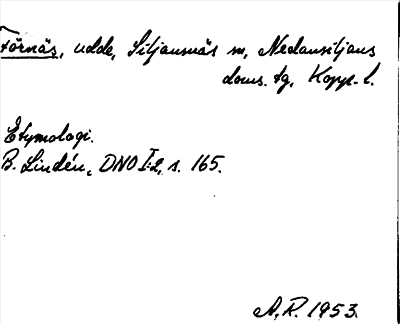 törnäs, udde, Siljansnäs sn, Nedansiljans
doms. tg, Kopp. l.
Etymologi.
B. Lindén, DNO I:2, s. 165.
A. R. 1953.